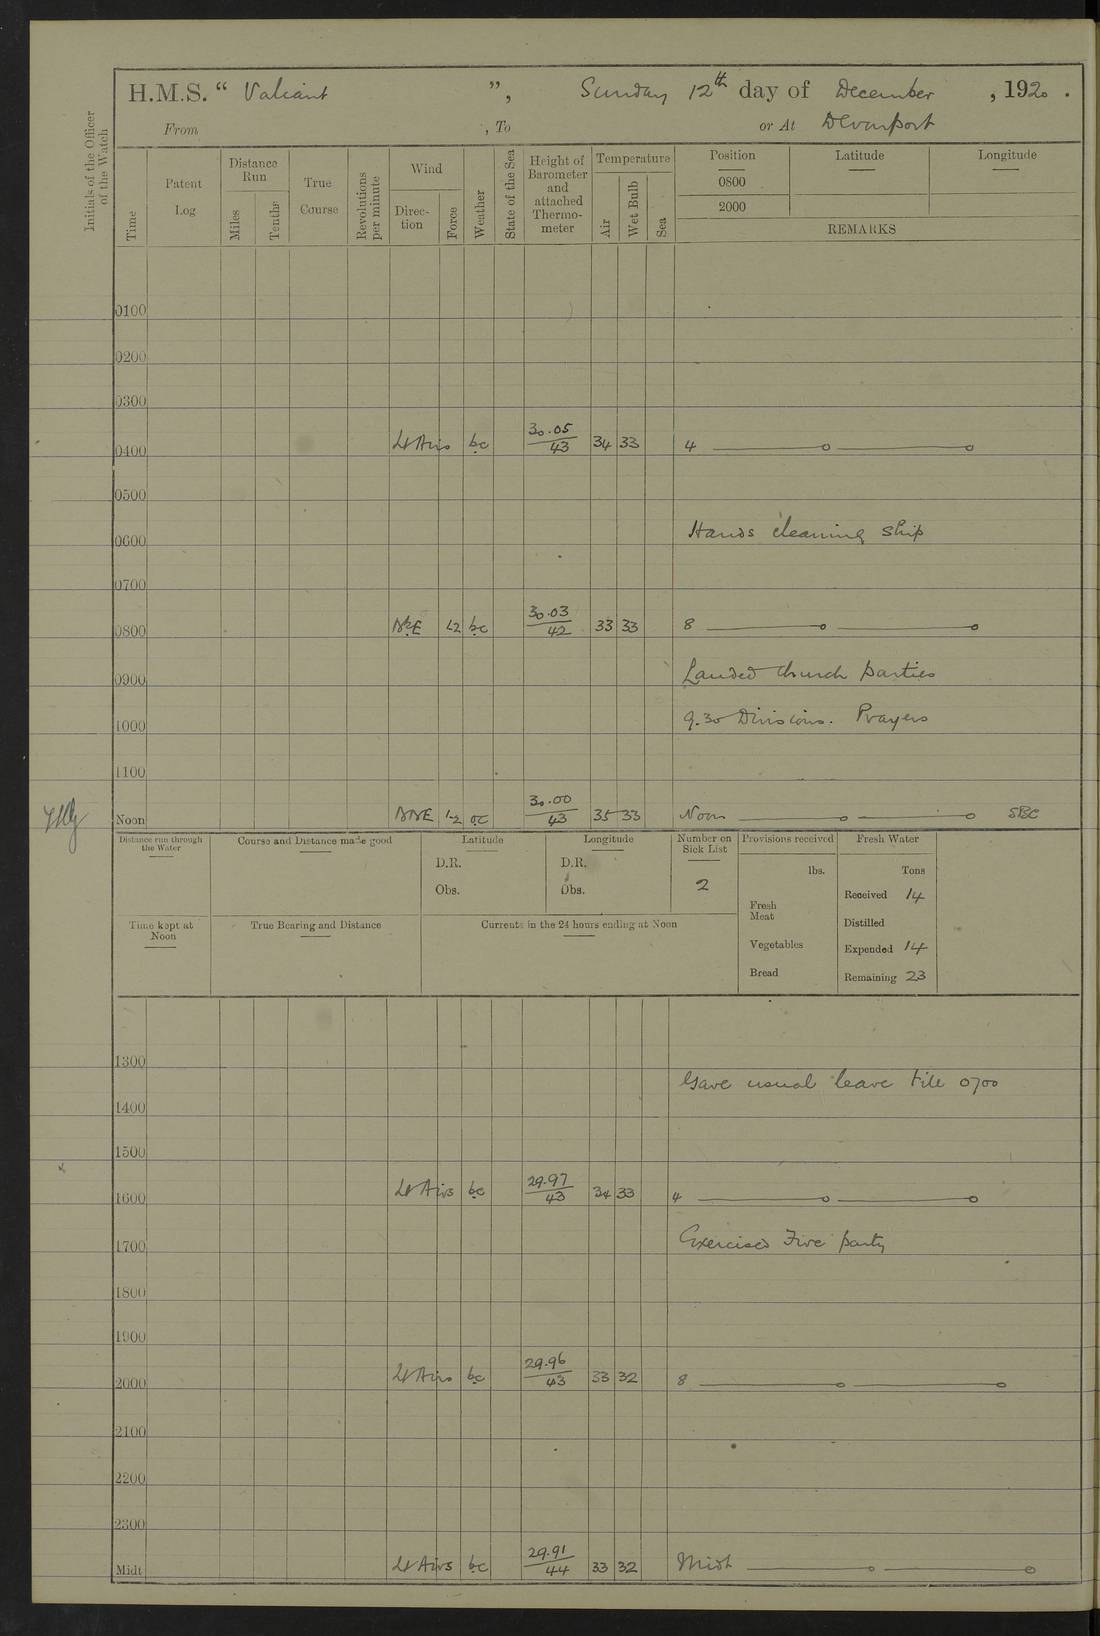 H.M.S. “ Valiant ”, Sunday 12th day of December , 1920 .
From , To or At Devonport
Initials of the Officer of the Watch
Time
Patent Log
Distance Run
Miles
Tenths
True Course
Revolutions per minute
Wind
Direc- tion
Force
Weather
State of the Sea
Height of Barometer and attached Thermo- meter
Temperature
Air
Wet Bulb
Sea
Position
0800
2000
Latitude
Longitude
REMARKS
0100
0200
0300
0400 Lt Airs bc 30.05 43 34 33 4
0500
0600 Hands cleaning ship
0700
0800 1-2 bc 30.03 42 33 33 8
0900 Landed church parties
1000 9.30 Divisions. Prayers
1100
Noon NNE 1-2 oc 30.00 43 35 33 Noon
Distance run through the Water
Course and Distance made good
Latitude
D.R.
Obs.
Longitude
D.R.
Obs.
Number on Sick List
2
Provisions received
lbs.
Fresh Meat
Vegetables
Bread
Fresh Water
Tons
Received 14
Distilled
Expended 14
Remaining 23
Time kept at Noon
True Bearing and Distance
Currents in the 24 hours ending at Noon
1300
Gave usual leave till 0700
1400
1500
1600 Lt Airs bc 29.97 43 34 33 4
1700 Exercised Fire party
1800
1900
2000 Lt Airs bc 29.96 43 33 32 8
2100
2200
2300
Midt Lt Airs bc 29.91 44 33 32 Midt